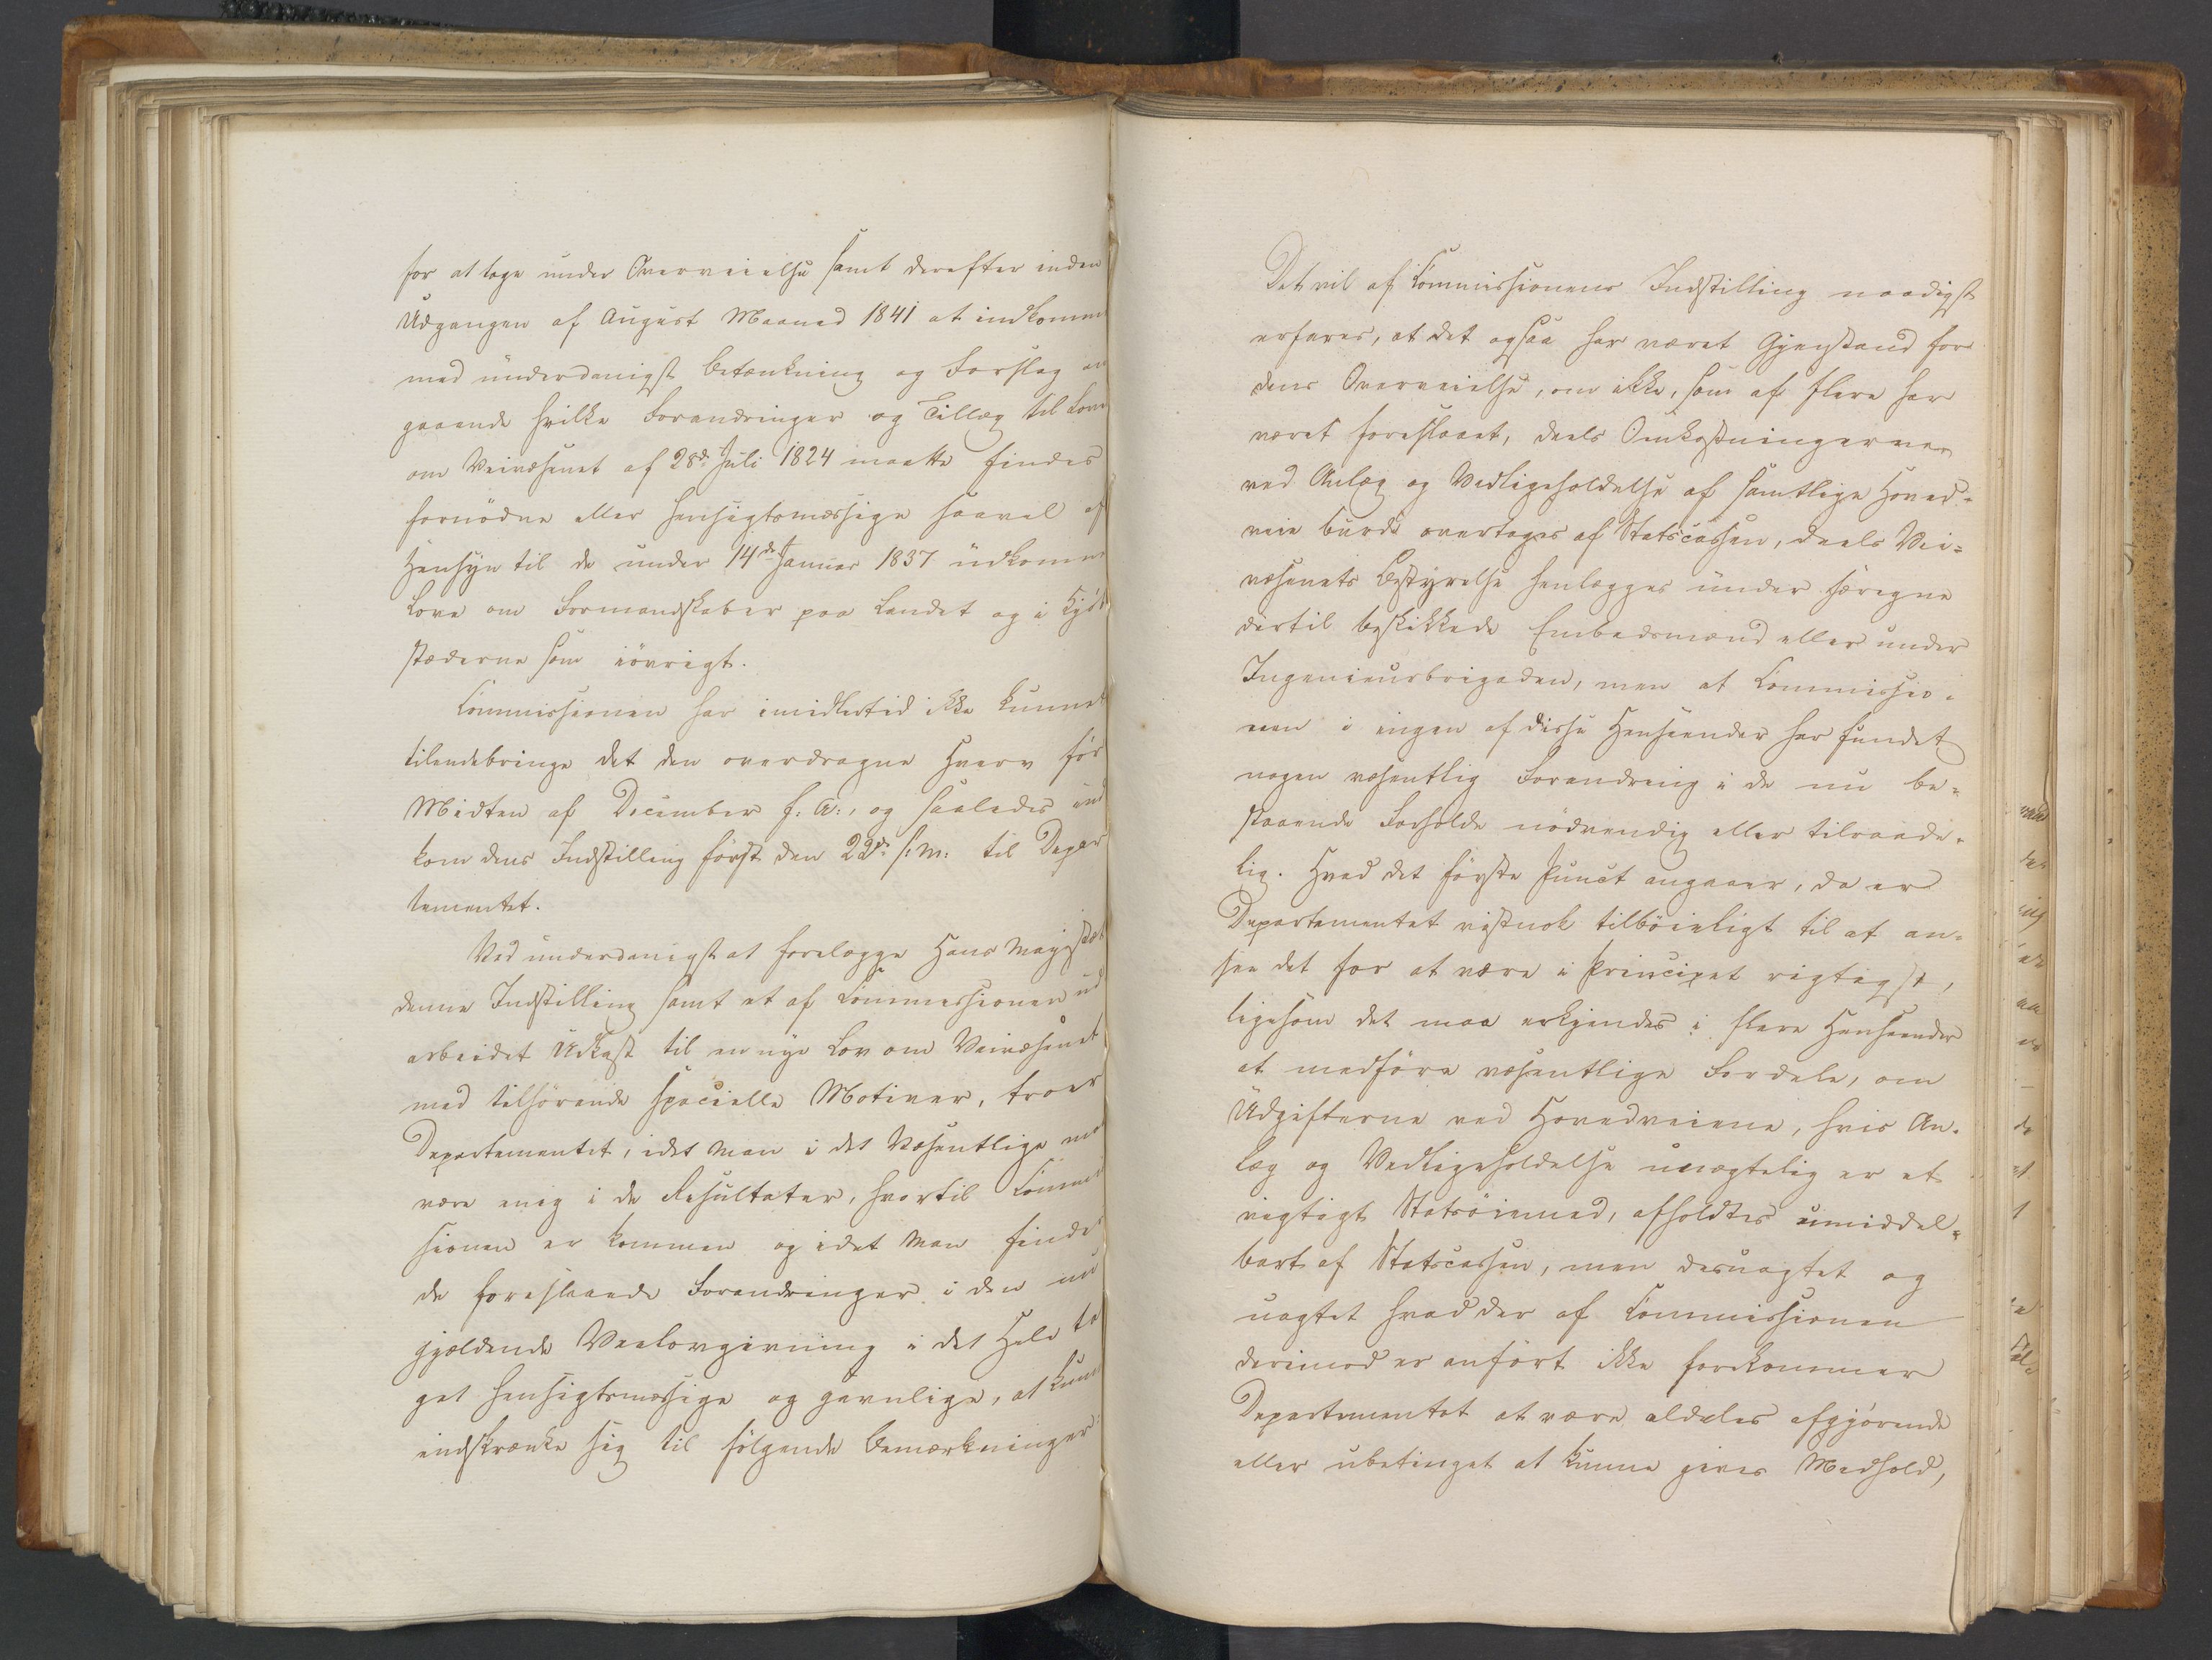 for at tage under Overveielse samt derefter inden
Udgangen af August Maaned 1841 at indkomm
med underdanigst Betænkning og Forslag an
gaaende hvilke Forandringer og Tillæg til Lov
om Veivæsenet af 28de Juli 1824 maatte findes
fornødne eller hensigtsmæssige saavel af
Hensyn til de under 14de Januar 1837 udkomne
Love om Formandskaber paa Landet og i Kjøb
stæderne som iøvrigt.
Commissionen har imidlertid ikke kunnet
tilendebringe det den overdragne Hverv før
Midten af December f: A:, og saaledes ind
kom dens Indstilling først den 22de s: M: til Depar
tementet.
Ved underdanigst at forelægge Hans Majestæt
denne Indstilling samt et af Commissionen ud
arbeidet Udkast til en nye Lov om Veivæsenet
med tilhørende specielle Motiver, troer
Departementet, idet man i det Væsentlige maa
være enig i de Resultater, hvortil Commis
sionen er kommen og idet man finder
de foreslaaede Forandringer i den nu
gjældende Veilovgivning i det Hele ta
get hensigtsmæssige og gavnlige, at kunne
indskrænke sig til følgende Bemærkninger:
Det vil af Commissionens Indstilling naadigst
erfares, at det ogsaa har været Gjenstand for
dens Overveielse, om ikke, som af flere har
været foreslaaet, deels Omkostningerne
ved Anlæg og Vedligeholdelse af samtlige Hoved-
veie burde overtages af Statscassen, deels Vei-
væsenets Bestyrelse henlægges under særegne
dertil beskikkede Embedsmænd eller under
Ingenieurbrigaden, men at Commissio-
nen i ingen af disse Henseender har fundet
nogen væsentlig Forandring i de nu be-
staaende Forholde nødvendig eller tilraade-
lig. Hvad det første Punct angaaer, da er
Departementet vistnok tilbøieligt til at an-
see det for at være i Principet rigtigst,
ligesom det maa erkjendes i flere Henseender
at medføre væsentlige Fordele, om
Udgifterne ved Hovedveiene, hvis An-
læg og Vedligeholdelse unægtelig er et
vigtigt Statsøiemed, afholdtes umiddel-
bart af Statscassen, men desuagtet og
uagtet hvad der af Commissionen
derimod er anført ikke forekommer
Departementet at være aldeles afgjørende
eller ubetinget at kunne gives Medhold,